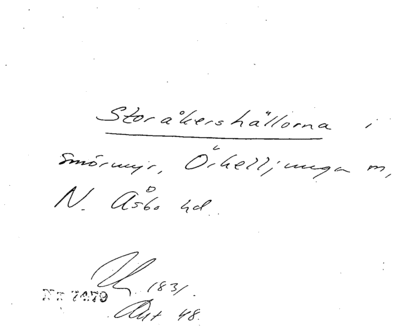 Storåkershällorna i
Smörmyr, Örkelljunga m,
N. Åsbo hd.
1831.
Nr 7479
Akt 48.